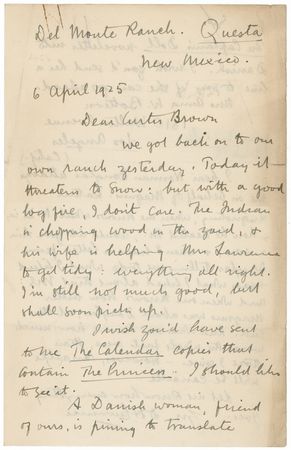 Del Monte Ranch. Questa
New Mexico.
6 April 1925
Dear Curtis Brown
We got back on to our
own ranch yesterday. Today it
threatens to snow: but with a good
log fire, I don't care. The Indian
is chopping wood in the yard, &
his wife is helping Mrs Lawrence
to get tidy: everything all right.
I'm still not much good, but
shall soon pick up.
I wish you'd have sent
to me The Calendar copies that
contain The Princess. I should like
to see it.
A Danish woman, friend
of ours, is pining to translate